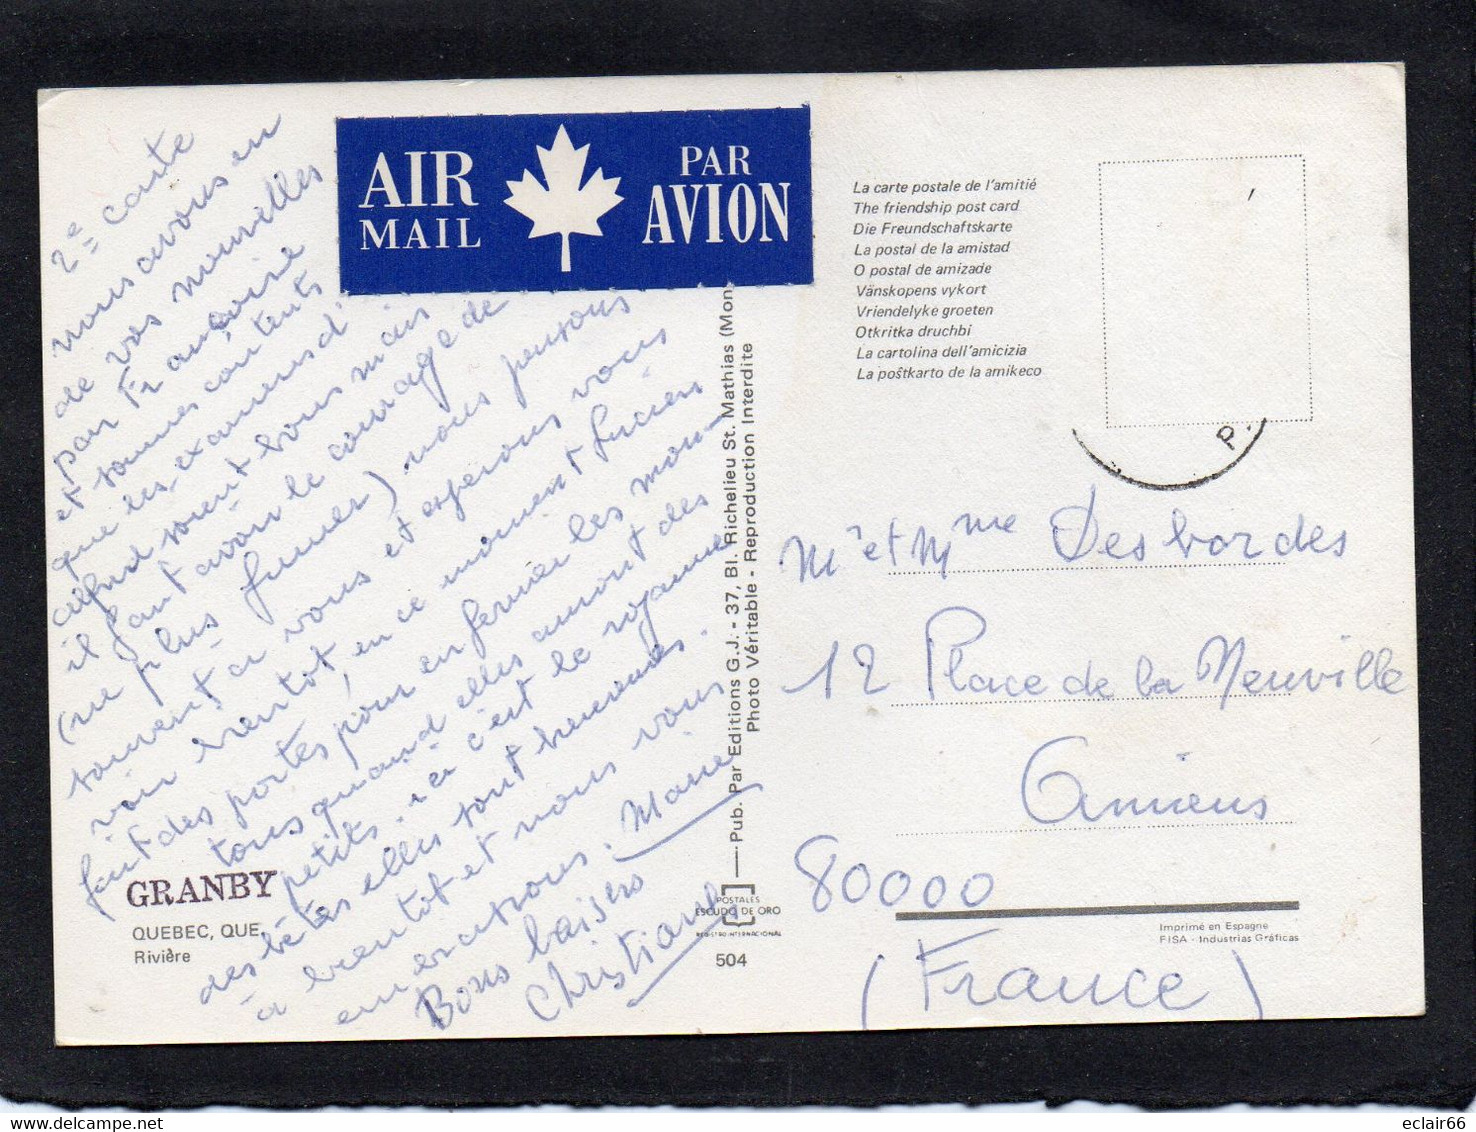 2e carte
nous avons eu
de vos nouvelles
par Françoise
et sommes contents
que les examens d'
alfred soient bons mais
il faut avoir le courage de
(ne plus fumer) nous pensons
souvent a vous et esperons vous
voir bientot, en ce moment Lucien
fait des portes pour enfermer les mou-
tons quand elles auront des
petits. ici c'est le royaume
des bêtes elles sont heureuses.
a bientot et nous vous
embrassons. Marie
Bons baisers
Christiane
AIR
MAIL
PAR
AVION
GRANBY
QUEBEC, QUE.
Rivière
Pub. Par Editions G.J. - 37, Bl. Richelieu St. Mathias (Mon
Photo Véritable - Reproduction Interdite
POSTALES
ESCUDO DE ORO
REGISTRO INTERNACIONAL
504
La carte postale de l'amitié
The friendship post card
Die Freundschaftskarte
La postal de la amistad
O postal de amizade
Vänskopens vykort
Vriendelyke groeten
Otkritka druchbi
La cartolina dell'amicizia
La poŝtkarto de la amikeco
P.
Mr et Mme Desbordes
12 Place de la Neuville
Amiens
80000
(France)
Imprimé en Espagne
FISA - Industrias Gráficas
eclair66